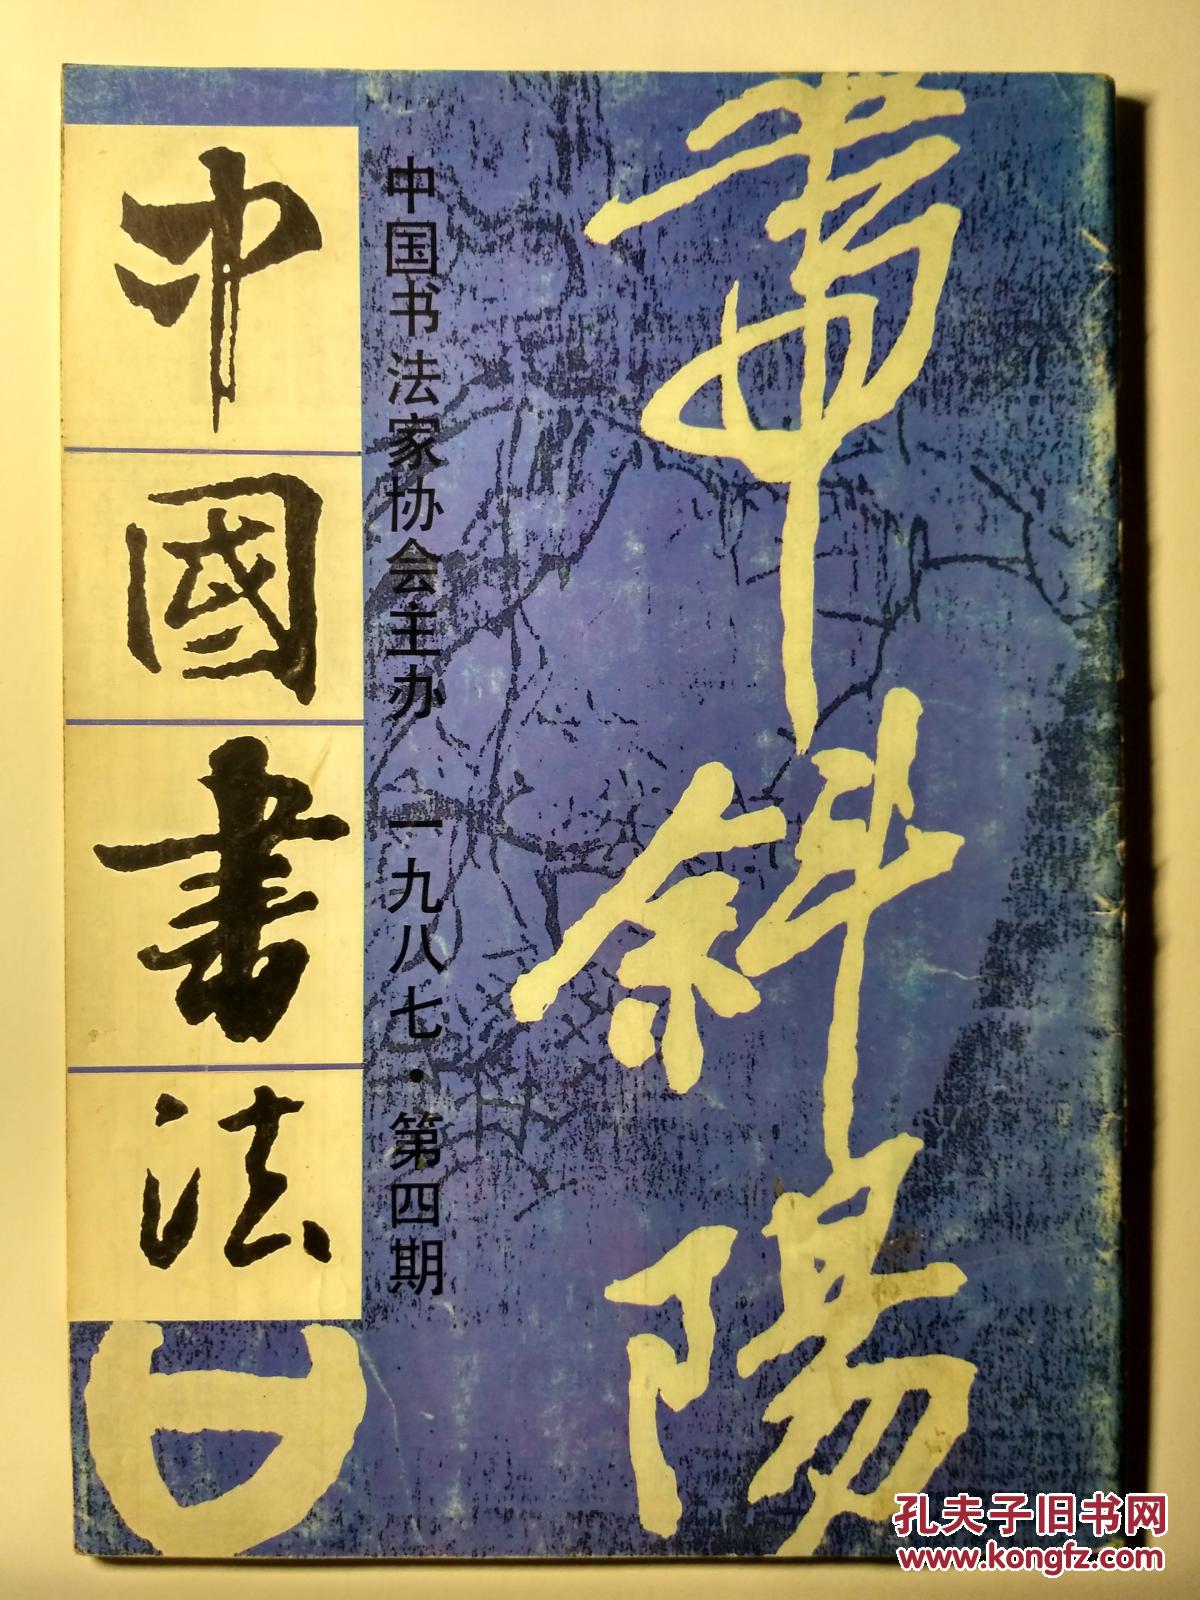 中國書法
中国书法家协会主办 一九八七·第四期
斜陽
孔夫子旧书网
www.kongfz.com